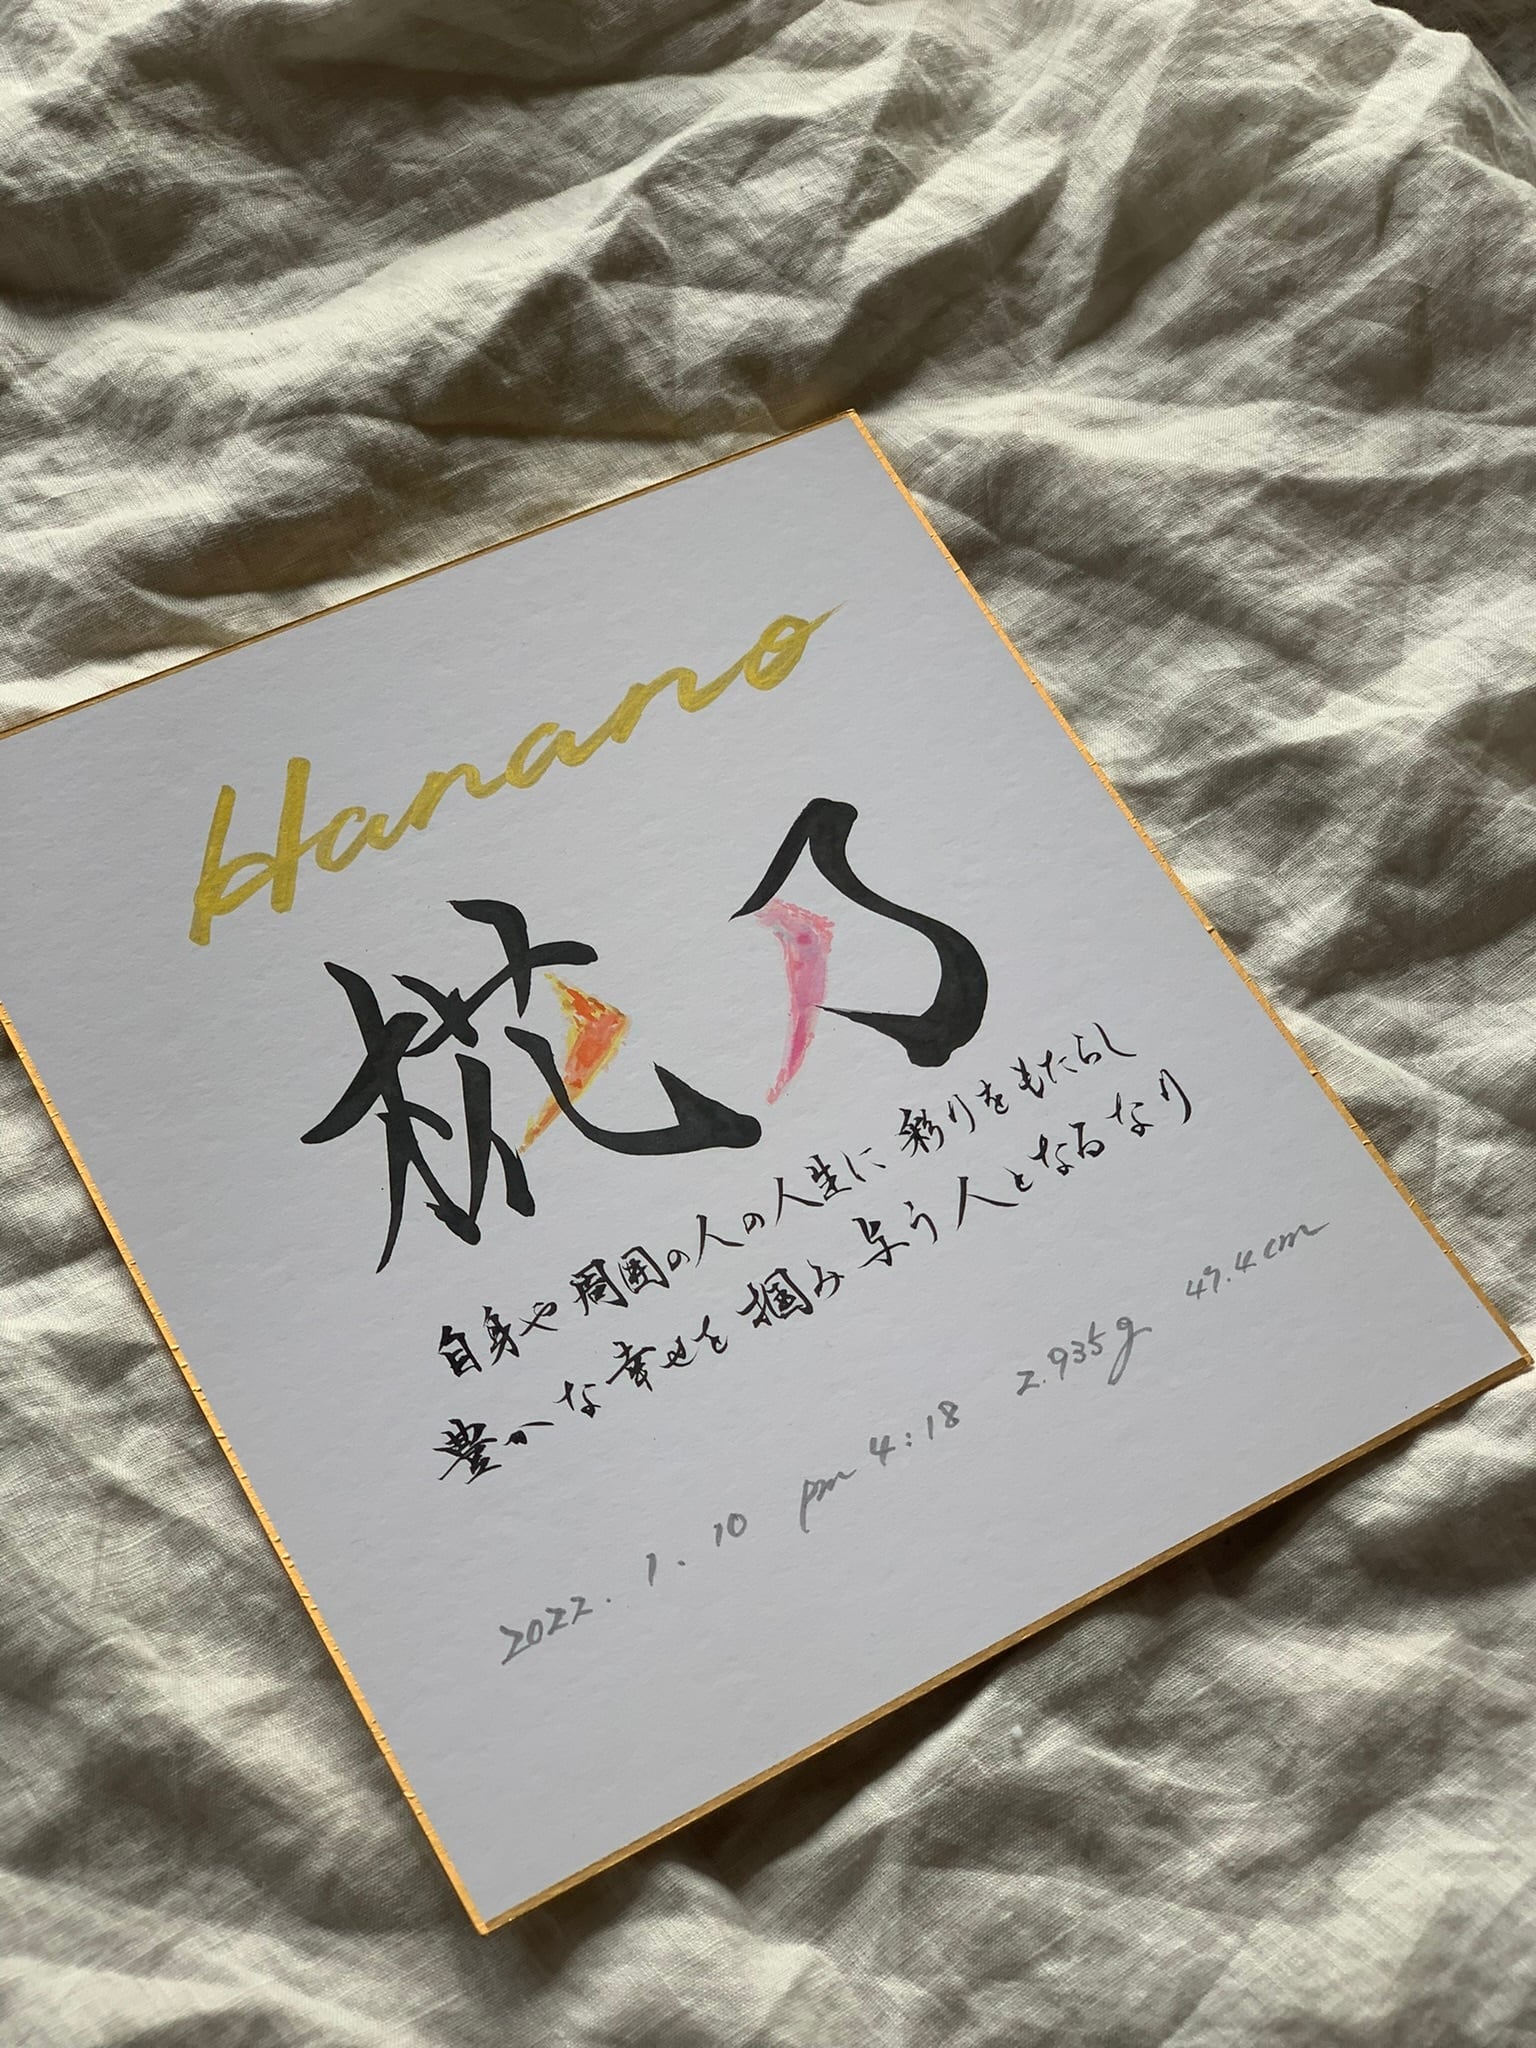 Hanano
椛乃
自身や周囲の人の人生に彩りをもたらし
豊かな幸せを掴み与う人となるなり
2022.1.10 pm 4:18 2.935g 47.4cm